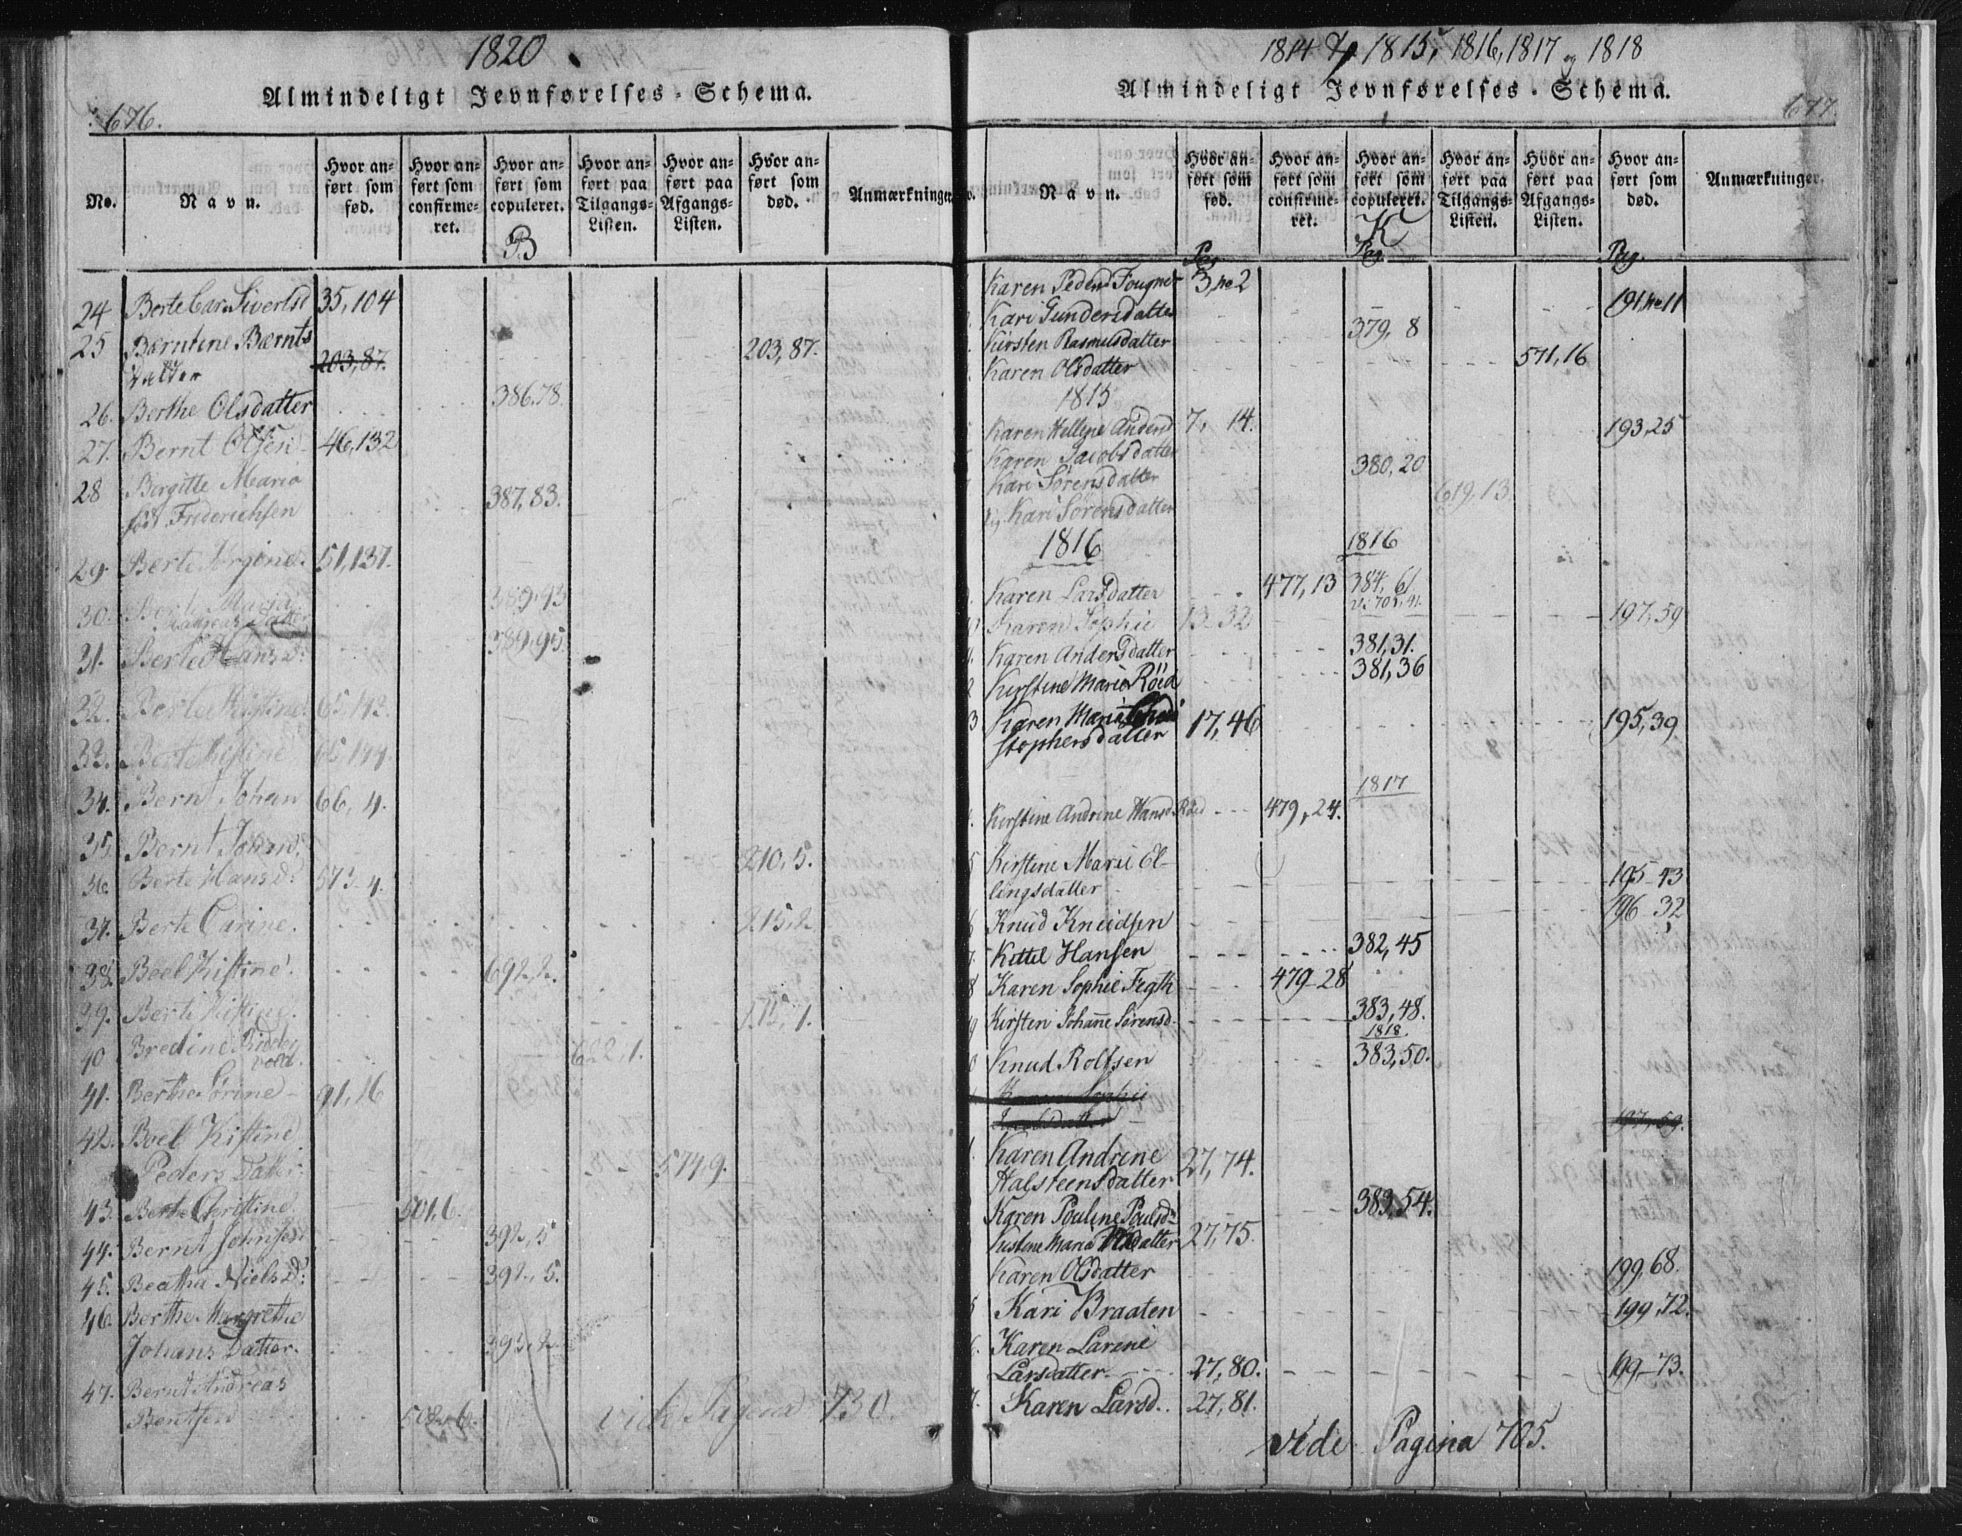 1820
676.
Almindeligt Jevnførelses-Schema.
No.
Navn.
Hvor anført som fød.
Hvor anført som confirmeret.
Hvor anført som copuleret.
Hvor anført paa Tilgangs-Listen.
Hvor anført paa Afgangs-Listen.
Hvor anført som død.
Anmærkninger
B
24 Berte Car. Sivertsd 35,104
25 Berntine Bærnts 203,87.
Datter 203,87.
26. Berthe Olsdatter 386.78.
27. Bernt Olsen 46,132
28 Birgitte Maria 387,83.
fød Friderichsen
29. Berte Jørgine. 51,137.
30. Berte Maria 389,93
31. Berte Hansd: 389,95.
32. Berte Kistine. 65,
33. Berte Kistine 65,
34. Bernt Johan 66, 4.
35. Bernt Johan 210,5.
36. Berte Hansd: 573 4.
37. Berte Carine. 215,2
38. Boel Kistine. 692 2.
39. Berte Kistine.
40 Bredine Ridder
vold. 622,1.
41. Berthe Sørine 91,16
42. Boel Kistine
Peders Datter. 574,9.
43. Berte Christine 501,6.
44. Bernt Johnsen 392,5
45. Beatha Nielsd: 392,5.
46. Berthe Margrethe
Johans Datter. 393,2
47. Bernt Andreas
Bentsen 502,6.
vide Pagina 730.
1814 1815, 1816, 1817 og 1818
Almindeligt Jevnførelses-Schema.
677.
Navn.
Hvor anført som fød.
Hvor anført som confirmeret.
Hvor anført som copuleret.
Hvor anført paa Tilgangs-Listen.
Hvor anført paa Afgangs-Listen.
Hvor anført som død.
Anmærkninger.
K
Pag Pag. Pag.
Karen Pedersd Fougner 3, no 2
Kari Gundersdatter 191, no 11
Kirsten Rasmusdatter 379, 8
Karen Olsdatter 571,16
1815
Karen Hellene Andersd 7, 14. 193,25
Karen Jacobsdatter
Kari Sørensdatter 380,20
Kari Sørensdatter 619,13.
1816 1816
Karen Larsdatter 477,13 384, 61
Karen Sophie 13 32 197,59
Karen Andersdatter 381,31.
Kirstine Marie Röed 381,36
3 Karen Maria Christophersdatter 17,46 195,39
1817
Kirstine Andrine Hansd Röed 479,24.
5 Kirstine Marie El-
lingsdatter 195-43
6 Knud Knudsen 196 32
7 Kittel Hansen 382,45
8 Karen Sophie Fegth 479-28
9 Kirsten Johañe Sørensd. 383,48.
1818.
Knud Rolfsen 383,50.
Karen Sophie
197,59.
Karen Andrine
Halsteensdatter 27,74.
Karen Pouline Poulsd: 383,54.
Kistine Maria datter 27,75.
Karen Olsdatter 199,68.
5 Kari Braaten 199,72.
6. Karen Larine
Larsdatter 27,80. 199-73.
7. Karen Larsd. 27,81.
vide Pagina 705.